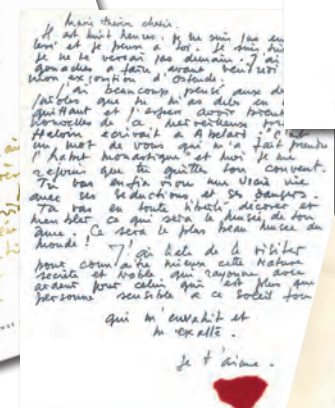 Marie Thérèse chérie.
Il est huit heures. Je ne suis pas en
et je pense à toi. Je suis
je ne te verrai pas demain. J'ai
gouaches à faire avant vendredi
mon exposition d'Ostende.
J'ai beaucoup pensé aux
paroles que tu m'as dites en
quittant et j'espère avoir bientôt
nouvelles de ce merveilleux
Héloïse écrivait à Abélard "C'est
un mot de vous qui m'a fait prendre
l'habit monastique" et moi je me
réjouis que tu quittes ton couvent.
Tu vas enfin vivre une vraie vie
avec ses séductions et ses dangers.
Tu vas en toute liberté décorer et
meubler ce qui sera le musée de ton
âme. Ce sera le plus beau musée du
monde ! J'ai hâte de le visiter
pour connaître mieux cette Nature
secrète et noble qui rayonne avec
ardeur pour celui qui est plus que
personne sensible à ce soleil
qui m'envahit et
m'exalte.
Je t'aime.